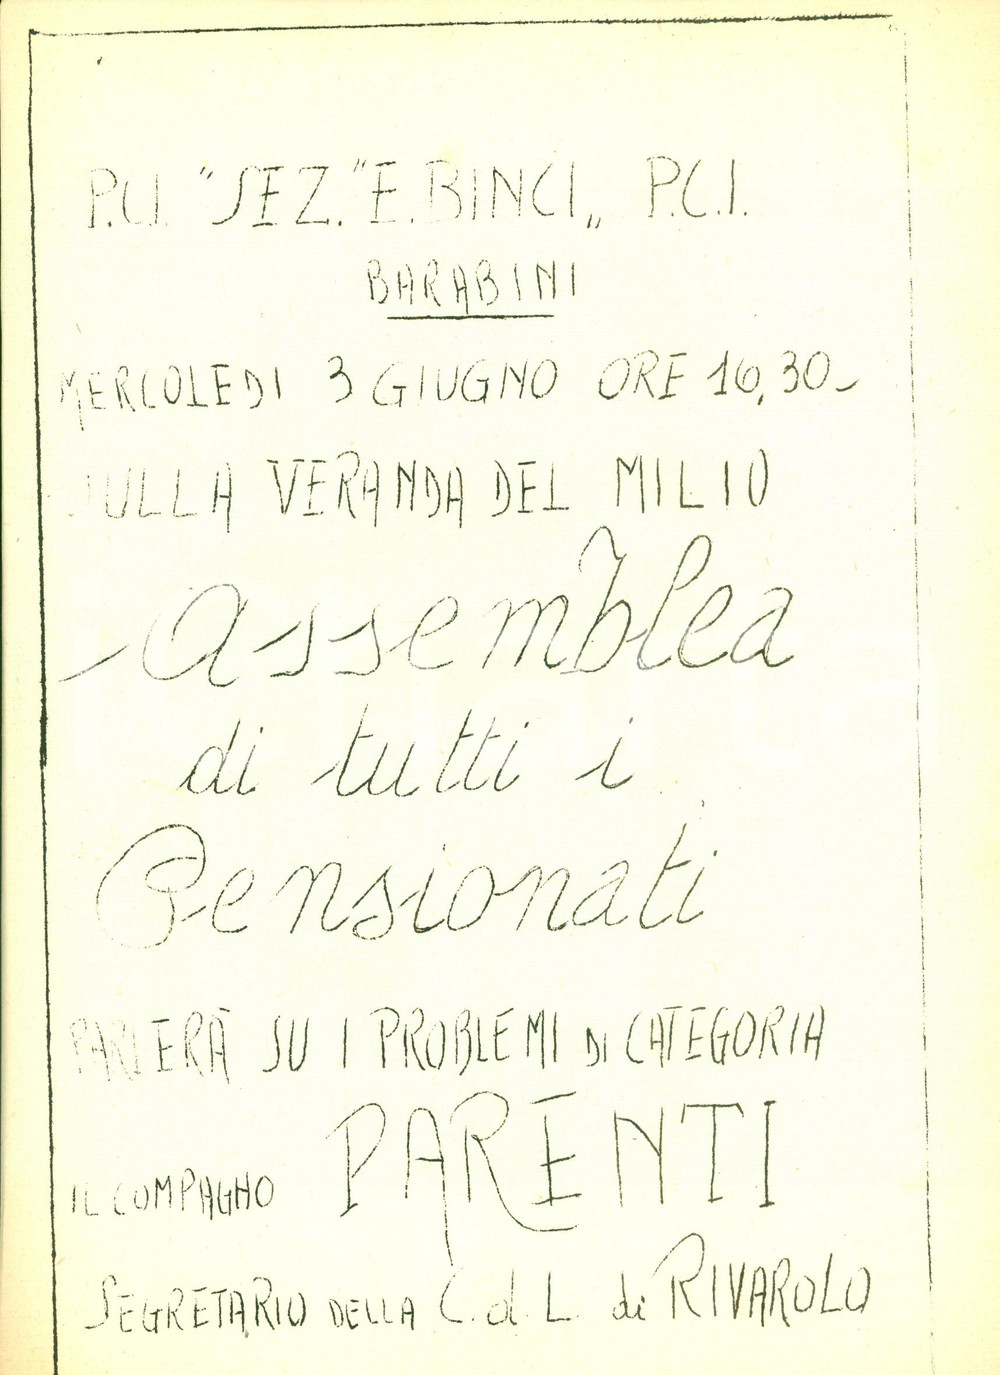 P.C.I. "SEZ." E. BINCI,, P.C.I.
BARABINI
MERCOLEDI 3 GIUGNO ORE 16,30-
SULLA VERANDA DEL MILIO
- Assemblea
di tutti i
Pensionati
PARLERÀ SU I PROBLEMI DI CATEGORIA
IL COMPAGNO PARENTI
SEGRETARIO DELLA C. d. L. di RIVAROLO